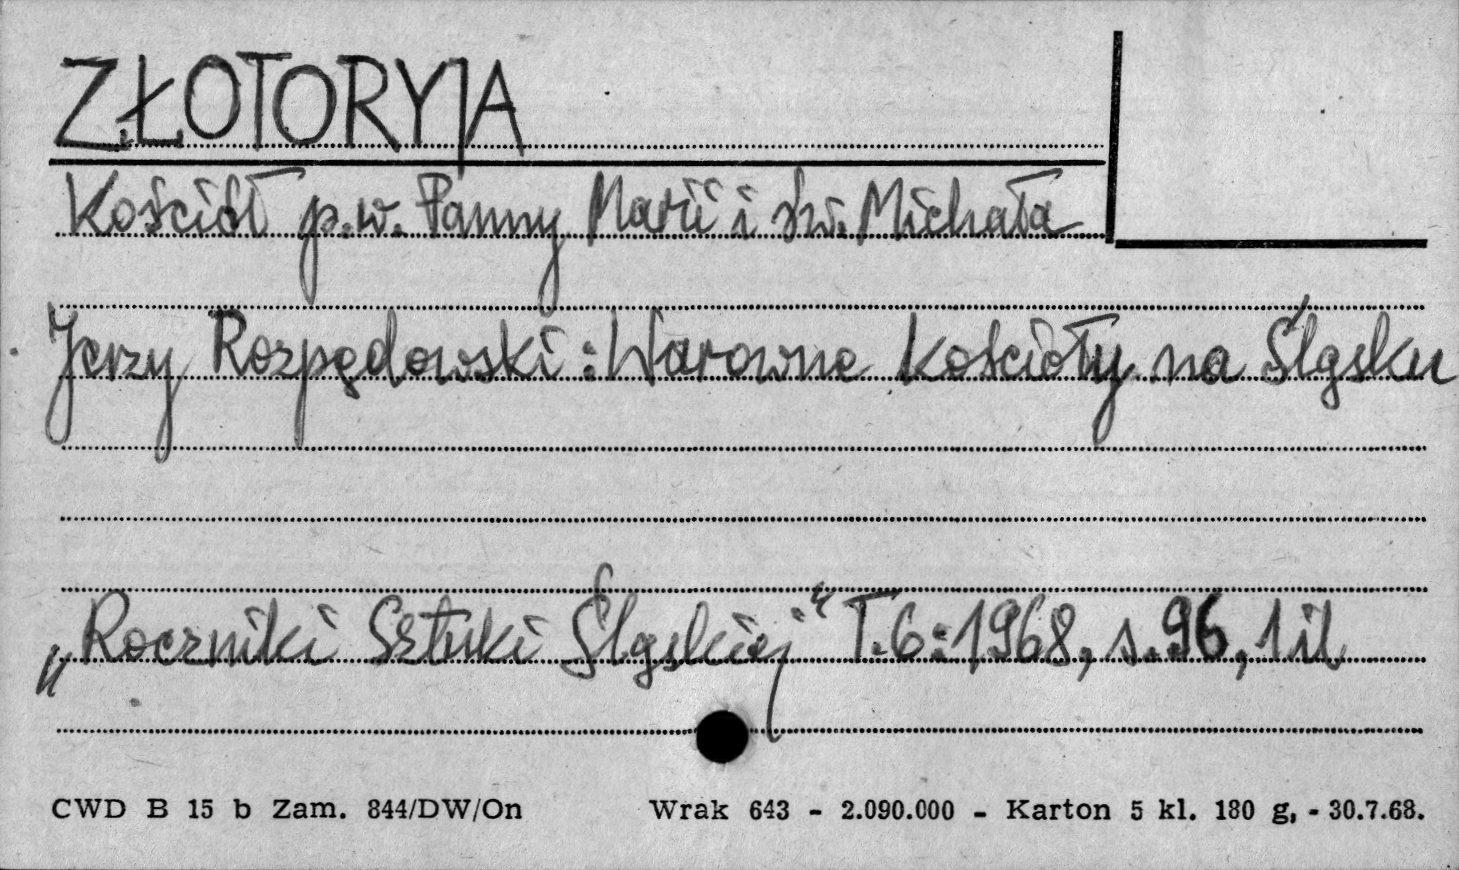 ZŁOTORYJA
Kościół p.w. Panny Marii i św. Michała
Jerzy Rozpędowski: Warowne kościoły na Śląsku
„Roczniki Sztuki Śląskiej" T.6:1968, s.96, 1 il
CWD B 15 b Zam. 844/DW/On Wrak 643 - 2.090.000 - Karton 5 kl. 180 g, - 30.7.68.